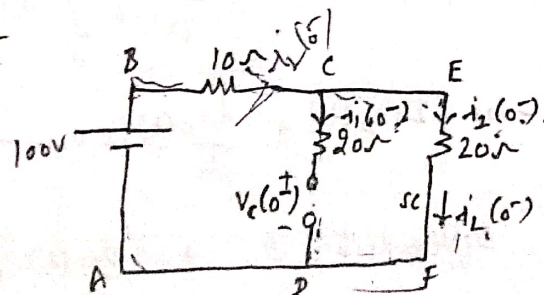 B 10Ω i(0⁻) C E
100V i₁(0⁻) 20Ω i₂(0⁻) 20Ω
+
Vc(0⁻) SC iL(0⁻)
-
A D F